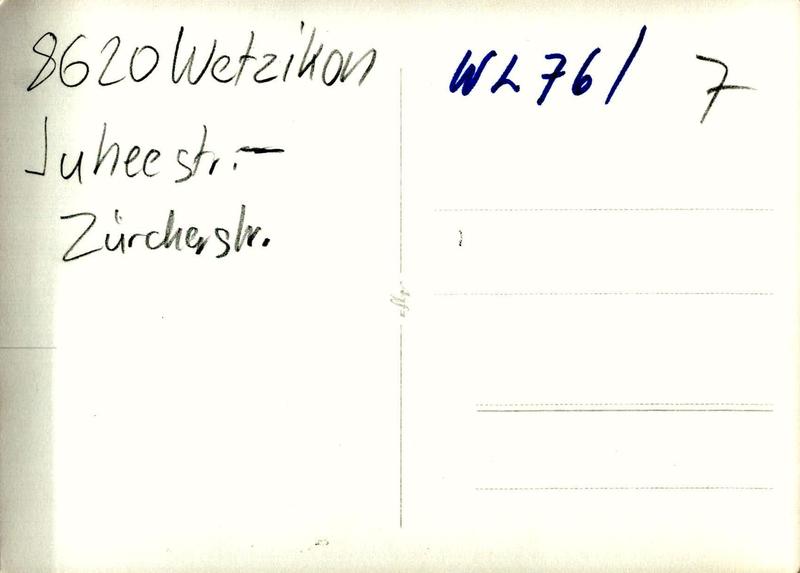 8620 Wetzikon
Juheestr.–
Zürcherstr.
WL 76/ 7